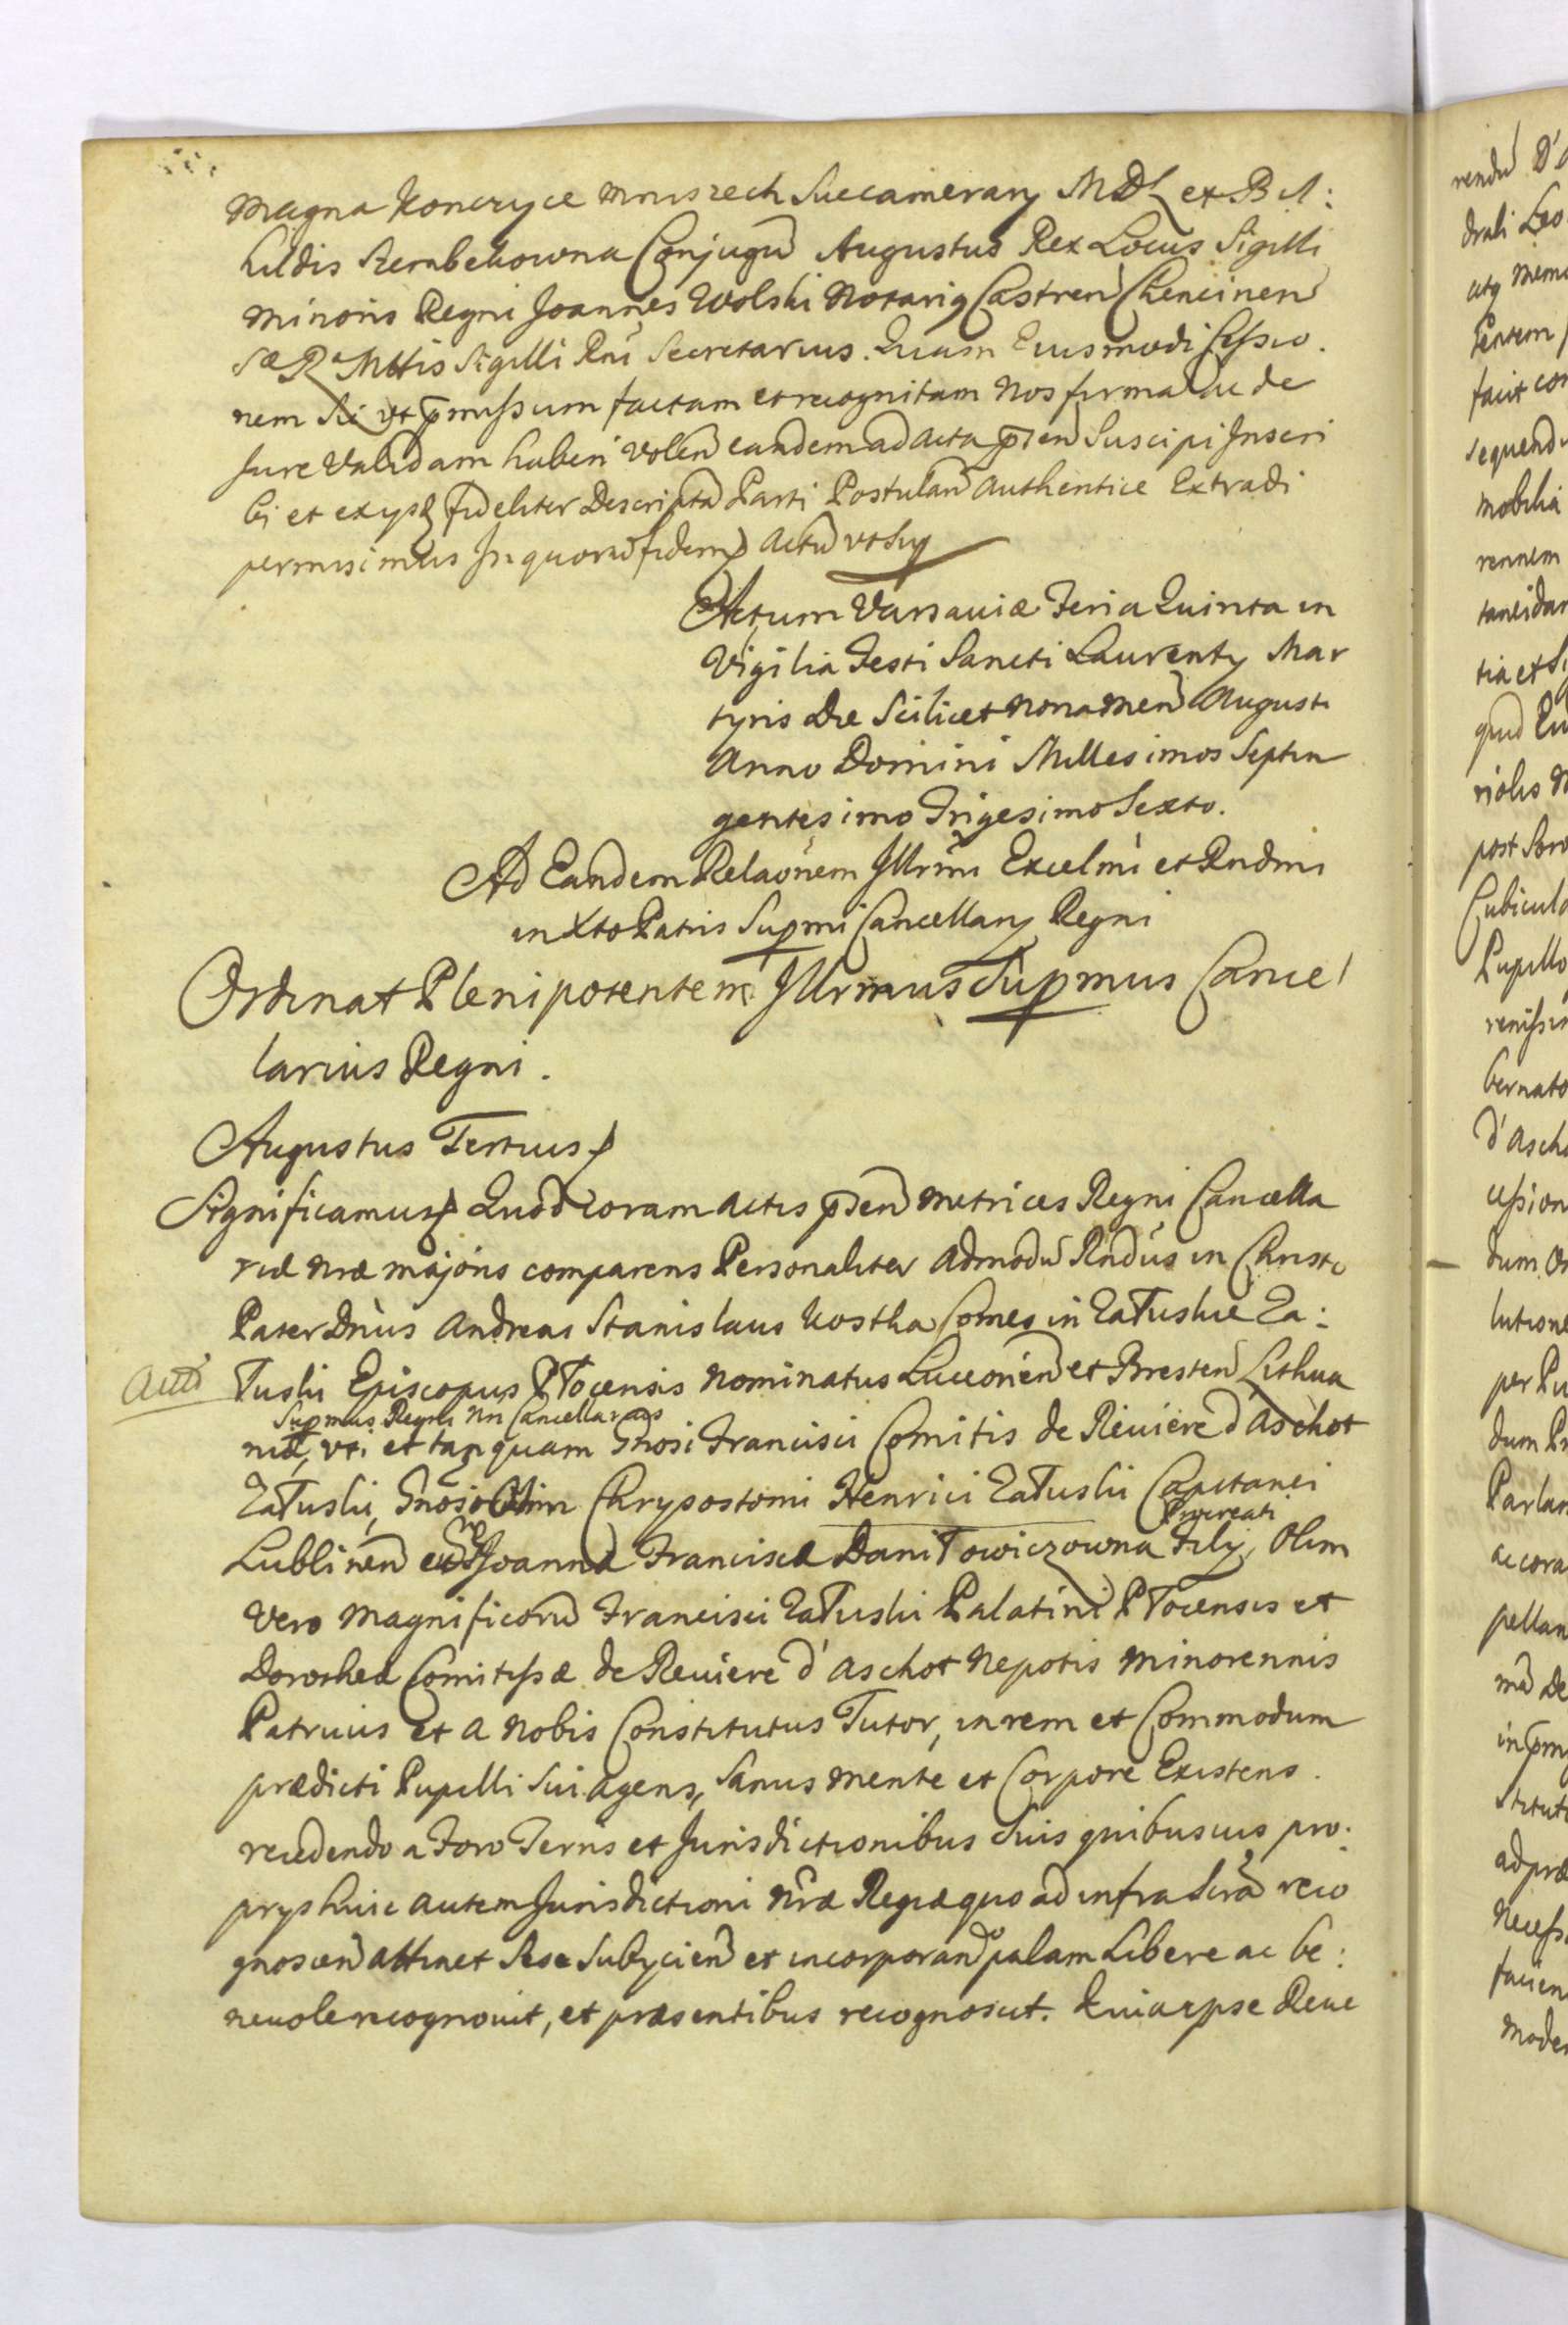 Magna Konczyce Mniszech Succamerary MDL et Bil:
hildis Szembekowna Conjugu Augustus Rex Locus Sigilli
Minoris Regni Joannes Wolski Notariq Castren Chencinen
SæRæ Mttis Sigilli Rni Secretarius. Quam Eiusmodi Cessio.
nem Sic ut pmissum factam et recognitam Nos firmam ac de
Jure Validam haberi volen eandem ad Acta pnsen Suscipi Inscri
bi et ex ysq fideliter Descripta Parti Postulan Authentice Extradi
permisimus In quoru fidem Actu vt Sup
Actum Varsaviæ Feria Quinta in
Vigilia Festi Sancti Laurenty Mar
tyris Die Scilicet Nona Men Augusti
Anno Domini Millesimos Septin
gentesimo Trigesimo Sexto.
Ad Eandem Relaonem Illrmi Excelmi et Rndmi
in Xto Patris Supmi Cancellary Regni
Ordinat Plenipotentem Illrmus Supmus Cancel
larius Regni.
Augustus Tertius
Significamus Quod coram Actis pnsen Metrices Regni Cancella
riæ Nræ majoris comparens Personaliter Admodu Rndus in Christo
Pater Dnus Andreas Stanislaus Kostka Comes in Załuskie Za:
Actū łuski Episcopus Płocensis Nominatus Luceorien et Bresten Lithua
Supmus Regni Nri Cancellarius
niæ, vti et tanquam Gnosi Francisci Comitis de Reviere d'Aschot
Załuski, Gnosi Olim Chrysostomi Henrici Załuski Capitanei
Procreati
Lublinen et Joanna Francisca Daniłowiczowna Fily, Olim
Vero Magnificoru Francisci Załuski Palatini Płocensis et
Dorothea Comitissæ de Reviere d'Aschot Nepotis Minorennis
Patruus et a Nobis Constitutus Tutor, in rem et Commodum
prædicti Pupilli Sui agens, Sanus mente et Corpore Existens.
recedendo a Foro Terris et Jurisdictionibus Suis quibusvis pro:
prys huic autem Jurisdictioni Nræ Regiæ quo ad infra Scra reco
gnoscen attinet Sese Subycien et incorporan palam Libere ac be:
nevole recognovit, et præsentibus recognoscit. Quia ipse Reve